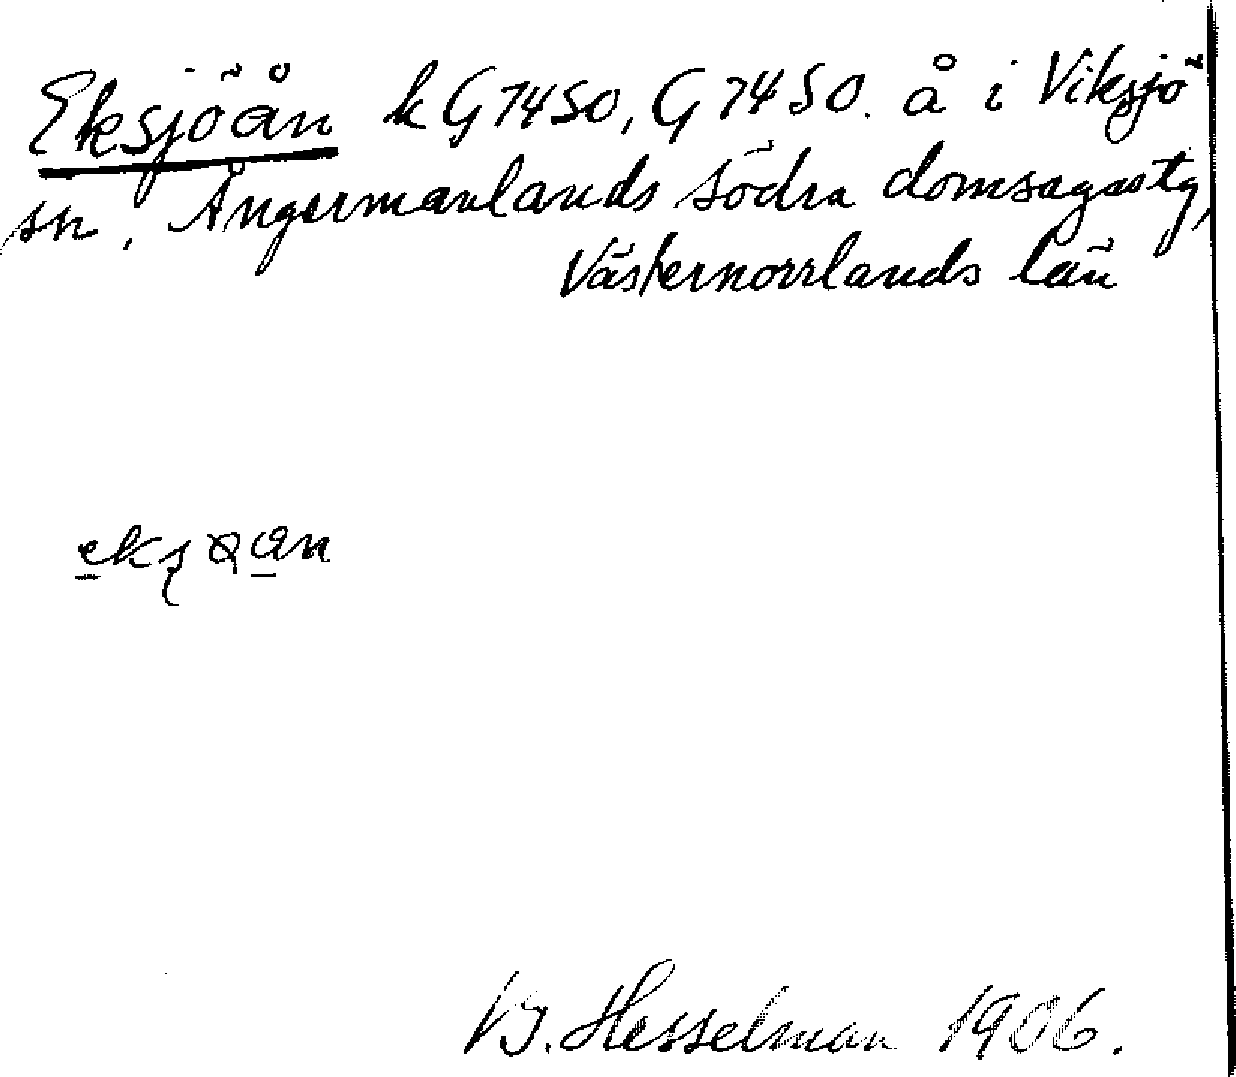 Eksjöån k G7450, G7450. å i Viksjö
sn, Ångermanlands södra domsagastg,
Västernorrlands län
B. Hesselman 1906.